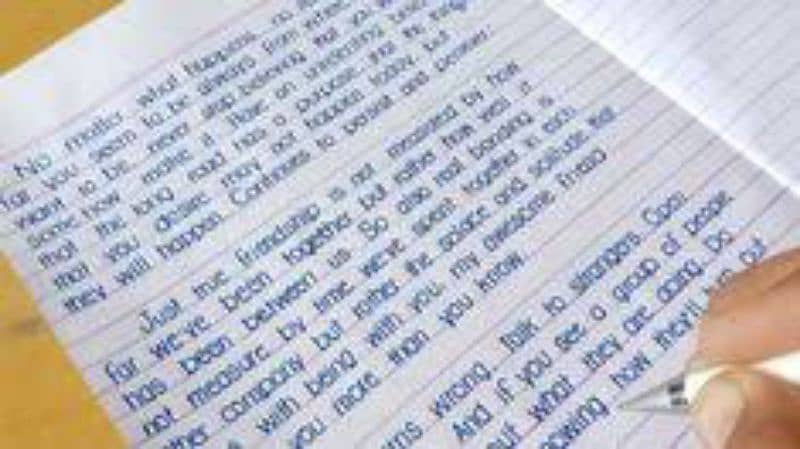 No matter what happens, no
far you seem to be always from where you
want to be, never stop believing that you will
some how make it. Have an unrelenting belief
that the long road has a purpose, that the things
that you desire may not happen today, but
they will happen. Continues to persist and persevere.
Just true friendship is not measured by how
far we've been together but rather how well it
has been between us. So also real bonding is
not measure by time we've spent together in each
other company but rather the solace and solitude that
with being with you, my awesome friend
you more than you know.
wrong. Talk to strangers. Open
And if you see a group of people
out what they are doing. Do
knowing how they'll turn out